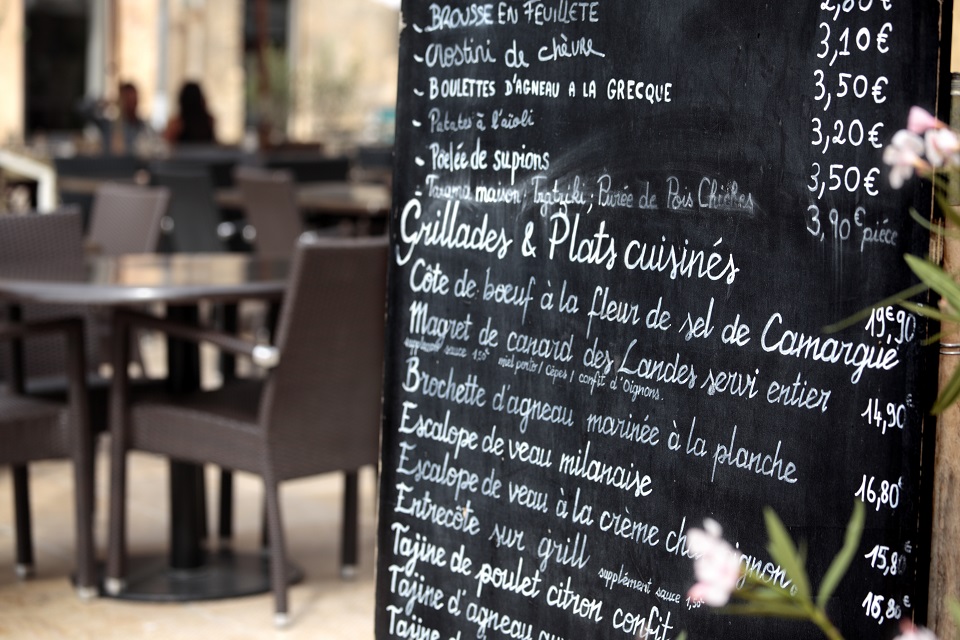 BROUSSE EN FEUILLETÉ
Crostini de chèvre 3,10€
BOULETTES D'AGNEAU A LA GRECQUE 3,50€
Patates à l'aïoli 3,20€
Poêlée de supions 3,50€
Tarama maison; Tzatziki; Purée de Pois Chiches 3,90€ pièce
Grillades & Plats cuisinés
Côte de boeuf à la fleur de sel de Camargue 19€90
Magret de canard des Landes servi entier 14,90€
supplément sauce 1,50€ miel porto / Cèpes / confit d'Oignons.
Brochette d'agneau marinée à la planche 16,80€
Escalope de veau milanaise 15,80€
Escalope de veau à la crème 16,80€
Entrecôte sur grill supplément sauce
Tajine de poulet citron confit
Tajine d'agneau
Tajine